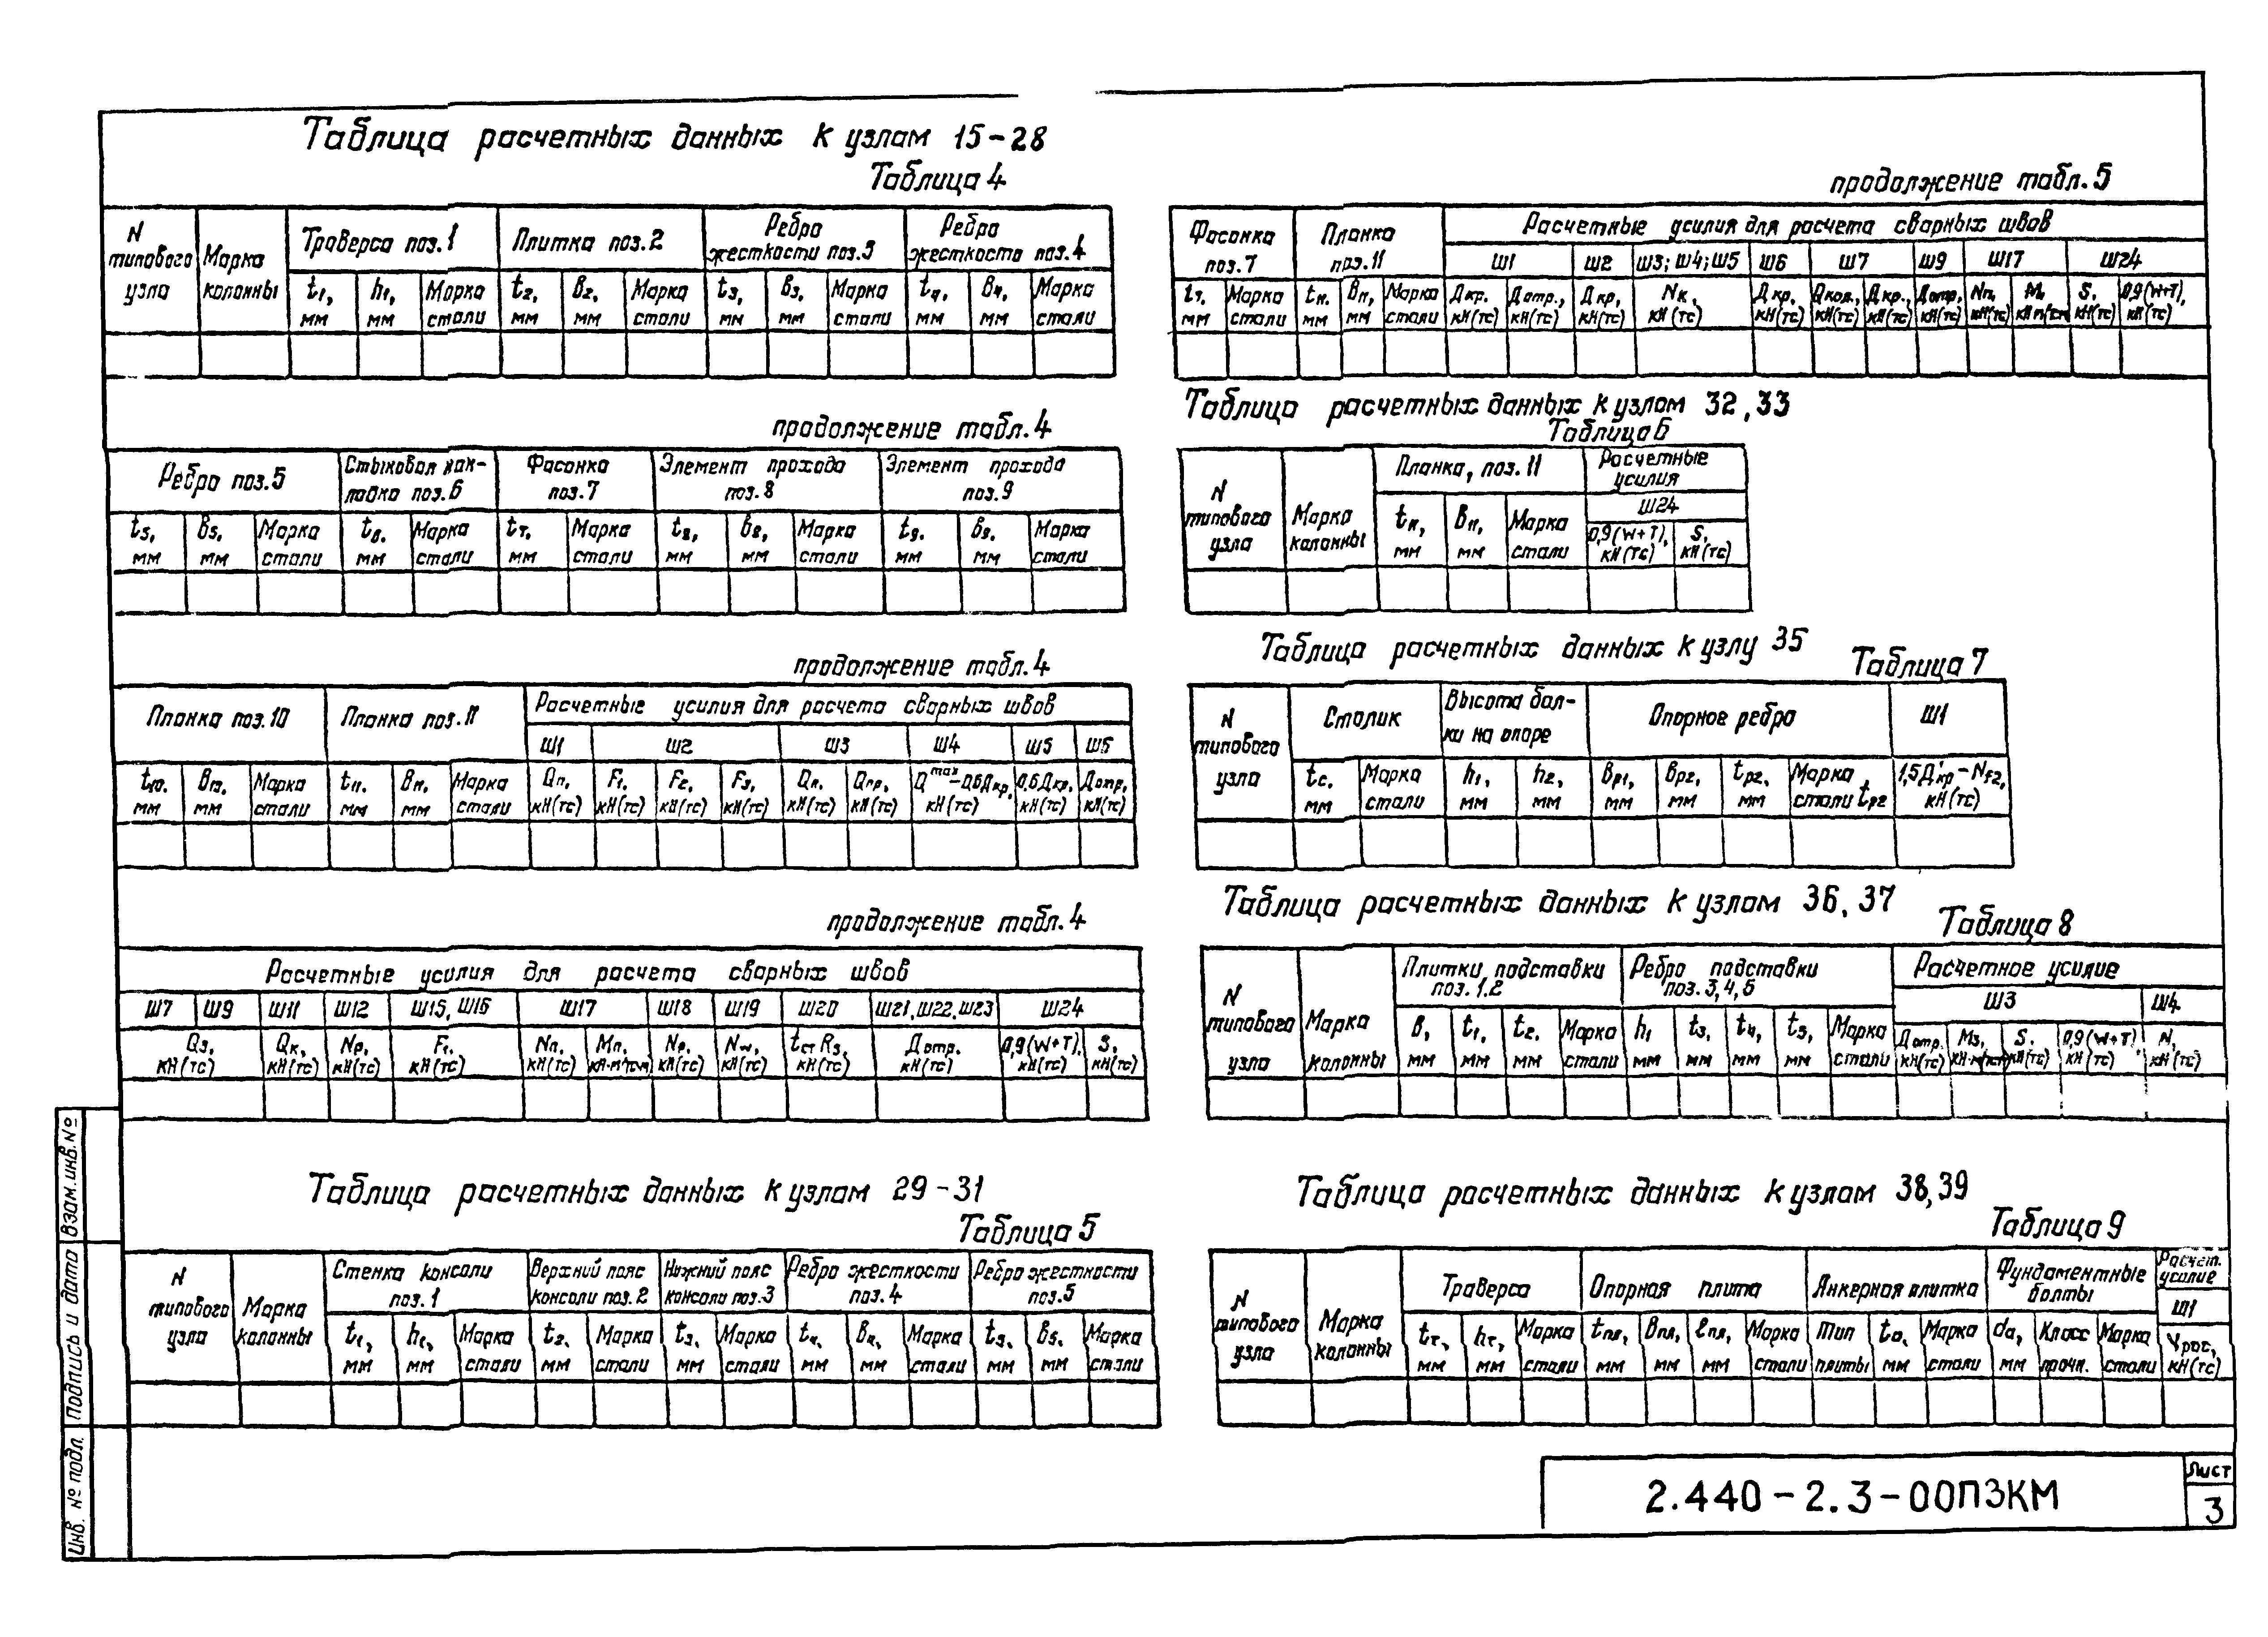 Таблица расчетных данных к узлам 15-28
Таблица 4
N типового узла
Марка колонны
Траверса поз.1
Плитка поз.2
Ребро жесткости поз.3
Ребро жесткости поз.4
t1, мм
h1, мм
Марка стали
t2, мм
в2, мм
Марка стали
t3, мм
в3, мм
Марка стали
t4, мм
в4, мм
Марка стали
продолжение табл.4
Ребро поз.5
Стыковая накладка поз.6
Фасонка поз.7
Элемент прохода поз.8
Элемент прохода поз.9
t5, мм
в5, мм
Марка стали
t6, мм
Марка стали
t7, мм
Марка стали
t8, мм
в8, мм
Марка стали
t9, мм
в9, мм
Марка стали
продолжение табл.4
Планка поз.10
Планка поз.11
Расчетные усилия для расчета сварных швов
Ш1
Ш2
Ш3
Ш4
Ш5
Ш6
t10, мм
в10, мм
Марка стали
t11, мм
в11, мм
Марка стали
Qп, кН(тс)
F1, кН(тс)
F2, кН(тс)
F3, кН(тс)
Qп, кН(тс)
Qпр, кН(тс)
Qmax-0,6Дкр, кН(тс)
0,6Дкр, кН(тс)
Дотр, кН(тс)
продолжение табл.4
Расчетные усилия для расчета сварных швов
Ш7
Ш9
Ш11
Ш12
Ш15, Ш16
Ш17
Ш18
Ш19
Ш20
Ш21, Ш22, Ш23
Ш24
Q3, кН(тс)
Qк, кН(тс)
Nр, кН(тс)
F1, кН(тс)
Nп, кН(тс)
Мп, кН·м(тс·м)
Nр, кН(тс)
Nw, кН(тс)
tст Rз, кН(тс)
Дотр. кН(тс)
0,9(W+T), кН(тс)
S, кН(тс)
Таблица расчетных данных к узлам 29-31
Таблица 5
N типового узла
Марка колонны
Стенка консоли поз.1
Верхний пояс консоли поз.2
Нижний пояс консоли поз.3
Ребро жесткости поз.4
Ребро жесткости поз.5
t1, мм
h1, мм
Марка стали
t2, мм
Марка стали
t3, мм
Марка стали
t4, мм
в4, мм
Марка стали
t5, мм
в5, мм
Марка стали
продолжение табл.5
Фасонка поз.7
Планка поз.11
Расчетные усилия для расчета сварных швов
Ш1
Ш2
Ш3; Ш4; Ш5
Ш6
Ш7
Ш9
Ш17
Ш24
t7, мм
Марка стали
t11, мм
в11, мм
Марка стали
Дкр. кН(тс)
Дотр., кН(тс)
Дкр, кН(тс)
Nк, кН(тс)
Дкр, кН(тс)
Qкол, кН(тс)
Дкр., кН(тс)
Дотр, кН(тс)
Nп, кН(тс)
М, кН·м(тс·м)
S, кН(тс)
0,9(W+T), кН(тс)
Таблица расчетных данных к узлам 32, 33
Таблица 6
N типового узла
Марка колонны
Планка, поз.11
Расчетные усилия
Ш24
t11, мм
в11, мм
Марка стали
0,9(W+T), кН(тс)
S, кН(тс)
Таблица расчетных данных к узлу 35
Таблица 7
N типового узла
Столик
Высота балки на опоре
Опорное ребро
Ш1
tс, мм
Марка стали
h1, мм
h2, мм
вр1, мм
вр2, мм
tр2, мм
Марка стали tр2
1,5Д'кр-Nf2, кН(тс)
Таблица расчетных данных к узлам 36, 37
Таблица 8
N типового узла
Марка колонны
Плитки подставки поз.1,2
Ребро подставки поз.3,4,5
Расчетное усилие
Ш3
Ш4
в, мм
t1, мм
t2, мм
Марка стали
h1 мм
t3, мм
t4, мм
t5, мм
Марка стали
Дотр. кН(тс)
М3, кН·м(тс·м)
S. кН(тс)
0,9(W+T), кН(тс)
N, кН(тс)
Таблица расчетных данных к узлам 38,39
Таблица 9
N типового узла
Марка колонны
Траверса
Опорная плита
Анкерная плитка
Фундаментные болты
Расчет. усилие
Ш1
tт, мм
hт, мм
Марка стали
tпл, мм
впл, мм
lпл, мм
Марка стали
Тип плиты
tа, мм
Марка стали
dа, мм
Класс прочн.
Марка стали
Vрас, кН(тс)
Инв. № подл.
Подпись и дата
Взам.инв.№
2.440-2.3-00ПЗКМ
Лист
3